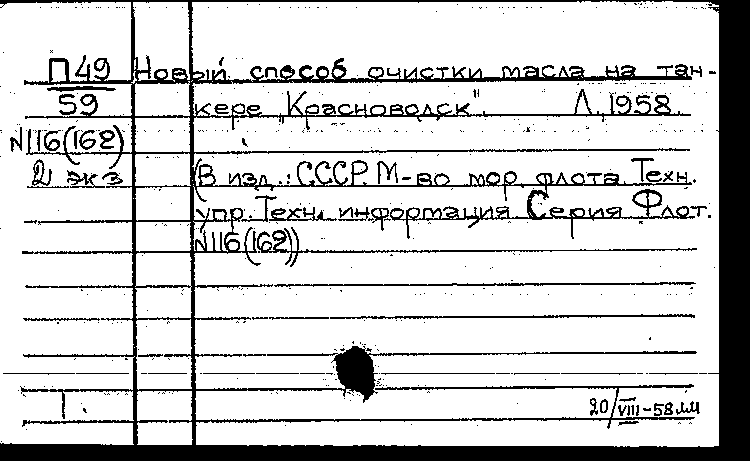 П49 Новый способ очистки масла на тан-
59 кере "Красноводск". Л., 1958.
N116(162)
2 экз (В изд.: СССР. М-во мор. флота. Техн.
упр. Техн. информация Серия Флот.
N116(162)).
1.
20/VIII-58 мм